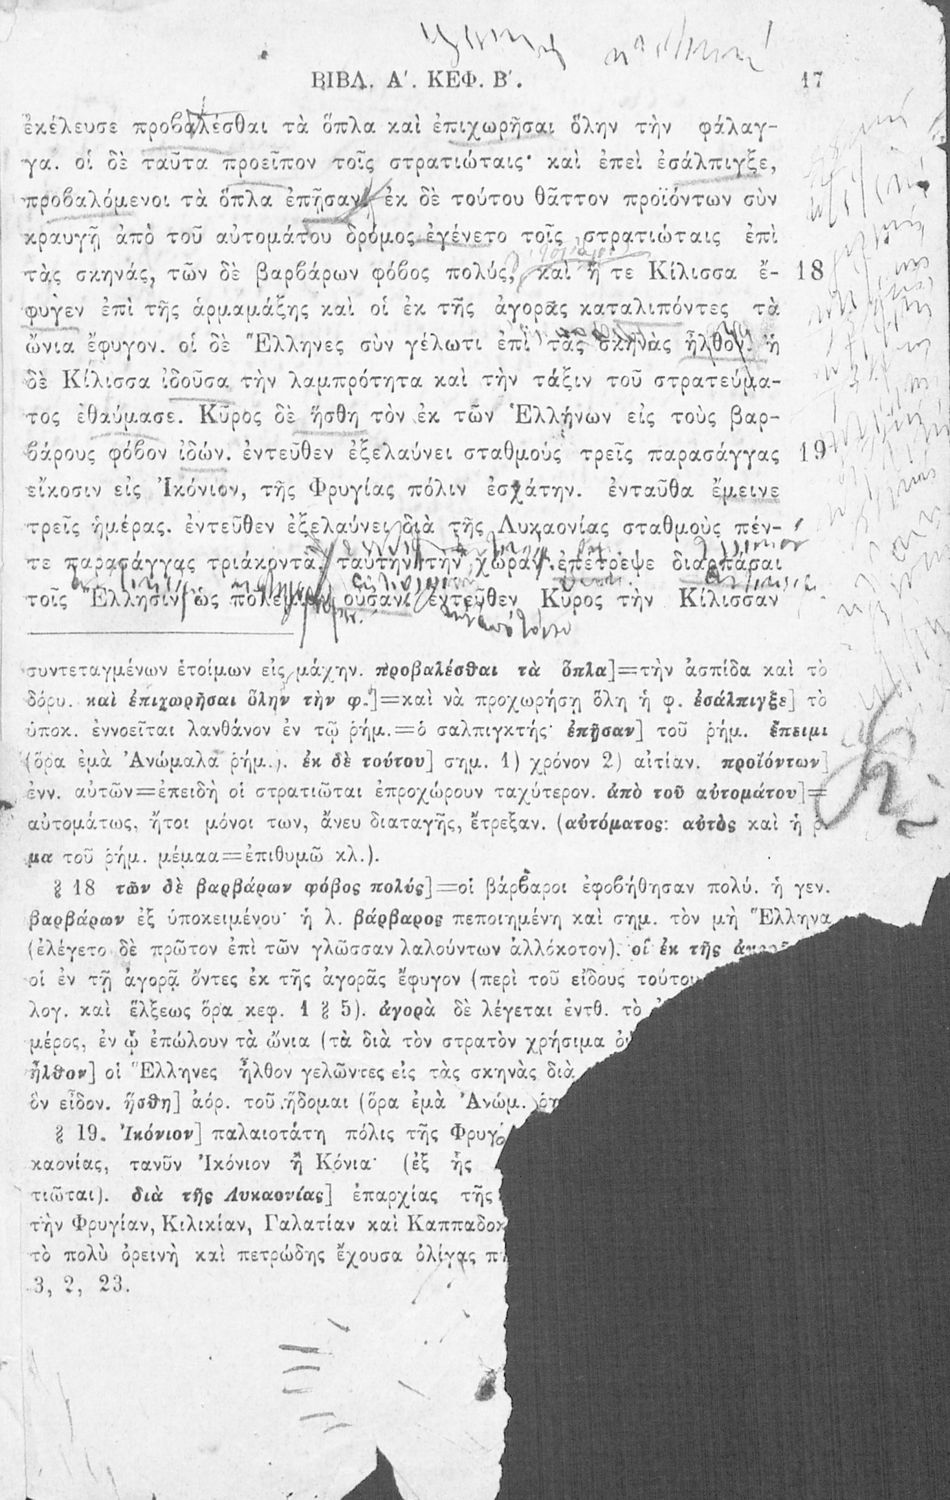 ΒΙΒΛ. Α΄. ΚΕΦ. Β΄. 17
ἐκέλευσε προβαλέσθαι τὰ ὅπλα καὶ ἐπιχωρῆσαι ὅλην τὴν φάλαγ-
γα. οἱ δὲ ταῦτα προεῖπον τοῖς στρατιώταις· καὶ ἐπεὶ ἐσάλπιγξε,
προβαλόμενοι τὰ ὅπλα ἐπῇσαν. ἐκ δὲ τούτου θᾶττον προϊόντων σὺν
κραυγῇ ἀπὸ τοῦ αὐτομάτου δρόμος ἐγένετο τοῖς στρατιώταις ἐπὶ
τὰς σκηνάς, τῶν δὲ βαρβάρων φόβος πολύς, καὶ ἥ τε Κίλισσα ἔ- 18
φυγεν ἐπὶ τῆς ἁρμαμάξης καὶ οἱ ἐκ τῆς ἀγορᾶς καταλιπόντες τὰ
ὤνια ἔφυγον. οἱ δὲ Ἕλληνες σὺν γέλωτι ἐπὶ τὰς σκηνὰς ἦλθον. ἡ
δὲ Κίλισσα ἰδοῦσα τὴν λαμπρότητα καὶ τὴν τάξιν τοῦ στρατεύμα-
τος ἐθαύμασε. Κῦρος δὲ ἥσθη τὸν ἐκ τῶν Ἑλλήνων εἰς τοὺς βαρ-
βάρους φόβον ἰδών. ἐντεῦθεν ἐξελαύνει σταθμοὺς τρεῖς παρασάγγας 19
εἴκοσιν εἰς Ἰκόνιον, τῆς Φρυγίας πόλιν ἐσχάτην. ἐνταῦθα ἔμεινε
τρεῖς ἡμέρας. ἐντεῦθεν ἐξελαύνει διὰ τῆς Λυκαονίας σταθμοὺς πέν-
τε παρασάγγας τριάκοντα. ταύτην τὴν χώραν ἐπέτρεψε διαρπάσαι
τοῖς Ἕλλησιν ὡς πολεμίαν οὖσαν. ἐντεῦθεν Κῦρος τὴν Κίλισσαν
συντεταγμένων ἑτοίμων εἰς μάχην. προβαλέσθαι τὰ ὅπλα]=τὴν ἀσπίδα καὶ τὸ
δόρυ. καὶ ἐπιχωρῆσαι ὅλην τὴν φ.]=καὶ νὰ προχωρήσῃ ὅλη ἡ φ. ἐσάλπιγξε] τὸ
ὑποκ. ἐννοεῖται λανθάνον ἐν τῷ ῥήμ.=ὁ σαλπιγκτής· ἐπῇσαν] τοῦ ῥήμ. ἔπειμι
(ὅρα ἐμὰ Ἀνώμαλα ῥήμ.). ἐκ δὲ τούτου] σημ. 1) χρόνον 2) αἰτίαν. προϊόντων]
ἐνν. αὐτῶν=ἐπειδὴ οἱ στρατιῶται ἐπροχώρουν ταχύτερον. ἀπὸ τοῦ αὐτομάτου]=
αὐτομάτως, ἤτοι μόνοι των, ἄνευ διαταγῆς, ἔτρεξαν. (αὐτόματος: αὐτὸς καὶ ἡ ρ.
μα τοῦ ῥήμ. μέμαα=ἐπιθυμῶ κλ.).
§ 18 τῶν δὲ βαρβάρων φόβος πολύς]=οἱ βάρβαροι ἐφοβήθησαν πολύ. ἡ γεν.
βαρβάρων ἐξ ὑποκειμένου· ἡ λ. βάρβαρος πεποιημένη καὶ σημ. τὸν μὴ Ἕλληνα
(ἐλέγετο δὲ πρῶτον ἐπὶ τῶν γλῶσσαν λαλούντων ἀλλόκοτον). οἱ ἐκ τῆς
οἱ ἐν τῇ ἀγορᾷ ὄντες ἐκ τῆς ἀγορᾶς ἔφυγον (περὶ τοῦ εἴδους τούτου
λογ. καὶ ἕλξεως ὅρα κεφ. 1 § 5). ἀγορὰ δὲ λέγεται ἐνтθ. τὸ
μέρος, ἐν ᾧ ἐπώλουν τὰ ὤνια (τὰ διὰ τὸν στρατὸν χρήσιμα
ἦλθον] οἱ Ἕλληνες ἦλθον γελῶντες εἰς τὰς σκηνὰς διὰ
ὃν εἶδον. ἥσθη] ἀόρ. τοῦ ἥδομαι (ὅρα ἐμὰ Ἀνώμ.
§ 19. Ἰκόνιον] παλαιοτάτη πόλις τῆς Φρυγ
καονίας, τανῦν Ἰκόνιον ἢ Κόνια· (ἐξ ἧς
τιῶται). διὰ τῆς Λυκαονίας] ἐπαρχίας τῆς
τὴν Φρυγίαν, Κιλικίαν, Γαλατίαν καὶ Καππαδοκ
τὸ πολὺ ὀρεινὴ καὶ πετρώδης ἔχουσα ὀλίγας
3, 2, 23.